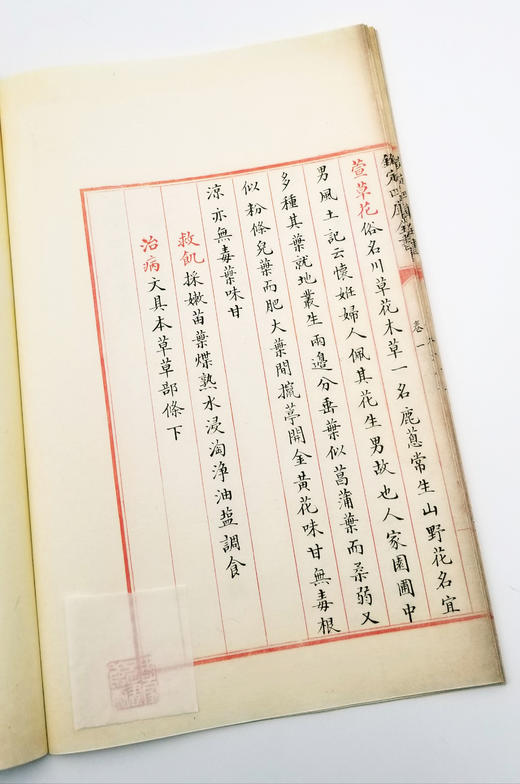 欽定四庫全書
卷一
萱草花俗名川草花木草一名鹿蔥常生山野花名宜
男風土記云懷妊婦人佩其花生男故也人家園圃中
多種其葉就地叢生兩邊分垂葉似菖蒲葉而柔弱又
似粉條兒葉而肥大葉間攛葶開金黃花味甘無毒根
涼亦無毒葉味甘
救飢採嫩苗葉煠熟水浸淘淨油盐調食
治病文具本草草部條下